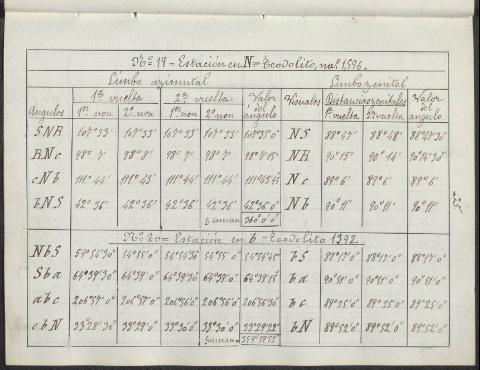 Nº 19 - Estación en N = Teodolito, no. 1396.
Limbo azimutal Limbo zenital
1ª vuelta 2ª vuelta Valor del ángulo Visuales Distancias zenitales Valor del ángulo
Angulos 1er non 2º non 1er non 2º non 1ª vuelta 2ª vuelta
SNR 107°33' 107°33' 107°33' 107°33' NS 88°47' 88°48'
RNc 98°7' 98°8' 98°7' 98°7' NR 90°15' 90°14' 90°14'30"
cNb 111°44' 111°43' 111°44' 111°44' 111°43'45" Nc 89°6' 89°6' 89°6'
bNS 42°36' 42°36' 42°36' 42°36' 42°36'0" Nb 90°11' 90°11' 90°11'
Suman 360°0'0"
Nº 20 = Estación en b - Teodolito 1392
NbS 54°54'30" 54°55'0" 54°54'30" 54°55'0" 54°54'45" bS 88°17'0" 88°17'0" 88°17'0"
Sba 64°39'30" 64°39'0" 64°39'30" 64°39'0" 64°39'15" ba 90°51'0" 90°51'0" 90°51'0"
abc 206°57'0" 206°57'0" 206°56'0" 206°56'0" 206°56'30" bc 89°25'0" 89°25'0" 89°25'0"
cbN 33°28'30" 33°29'0" 33°30'0" 33°30'0" 33°29'22" bN 89°52'0" 89°52'0" 89°52'0"
Suman = 359°59'52"